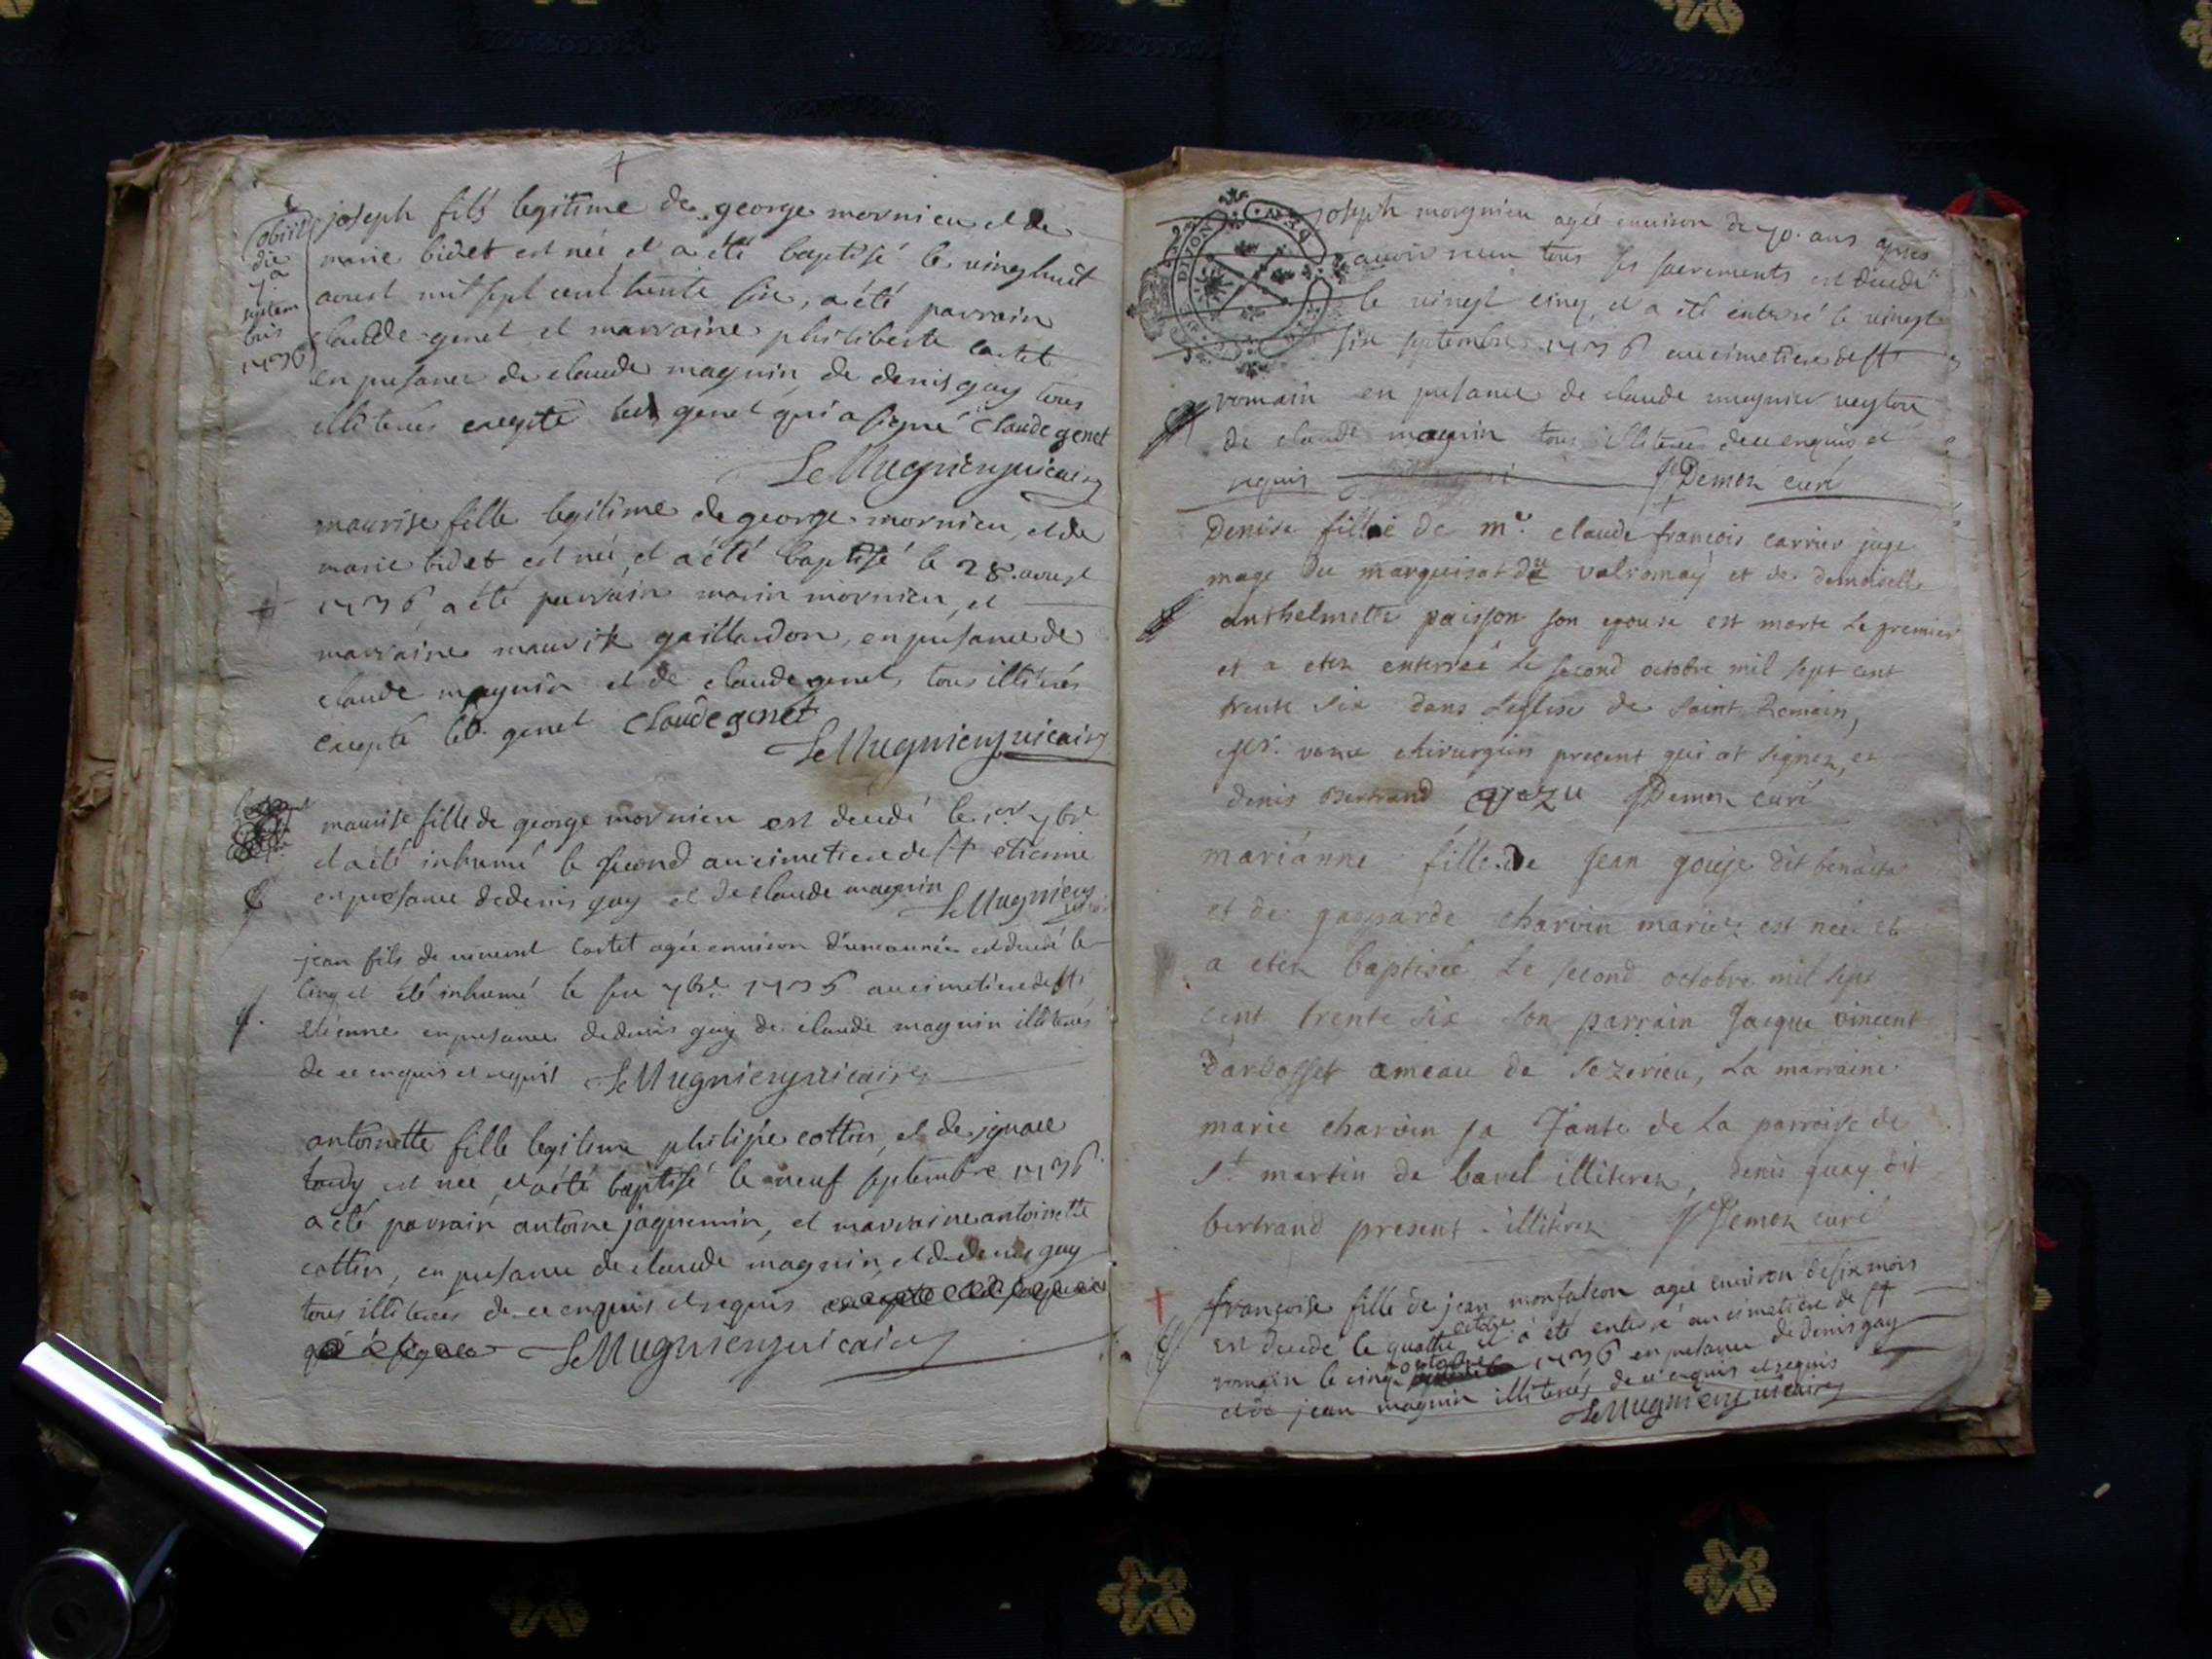 joseph fils legitime de george mornieu et de
marie bidet est né et a été baptisé le vinghuit
aoust mil sept cent trente six, a été parrain
claude genet et marraine philiberte cartet
en presance de claude magnin de denis guy tous
illiterés excepté led genet qui a signé Claude genet
LeMugnier vicaire
obiit
die
7a
septem
bris
1736
maurise fille legitime de george mornieu, et de
marie bidet est née, et a été baptisé le 28. aoust
1736 a été parrain marin mornieu, et
marraine maurise gaillardon, en presance de
claude magnin et de claude genet, tous illiterés
excepté led. genet Claude genet
LeMugnier vicaire
maurise fille de george mornieu est decedé le 1er 7bre
et a été inhumé le second au cimetiere de st etienne
en presance de denis guy et de claude magnin LeMugnier
jean fils de cartet agée environ d'une année est decedé le
cinq et été inhumé le six 7bre 1736 au cimetiere de st
etienne en presance de denis guy de claude magnin illiterés
de ce enquis et requis LeMugnier vicaire
antoinette fille legitime philipe cottin, et de
est née, et a été baptisé le neuf septembre 1736
a été parrain antoine jaquemin, et marraine antoinette
cottin, en presance de claude magnin, et de denis guy
tous illiterés de ce enquis et requis
LeMugnier vicaire
DIJON
joseph morgnieu agée environ de 70. ans apres
avoir receu tous ses sacrements est decedé
le vingt cinq, et a été enterré le vingt
six septembre 1736 au cimetiere de st
romain en presance de claude
de claude magnin tous illiterés de ce enquis et
requis Demon curé
Denise fille de mr. claude francois carrier juge
mage du marquisat du valromay et de demoiselle
anthelmette paisson son epouse est morte le premier
et a eten enterreé le second octobre mil sept cent
trente six dans leglise de saint Romain,
chirurgien present qui at signez, et
denis Bertrand Demon curé
marianne fille de jean gouje dit benoita
et de gasparde charvin mariez est neé et
a eten baptiseé le second octobre mil sept
cent trente six son parrain jacque vincent
dardosset ameau de sezerieu, la marraine
marie charvin sa Tante de la parroise de
St martin de bavel illiterez, denis guay dit
bertrand present illiterez Demon curé
françoise fille de jean monfalcon agée environ de six mois
est decedé le quatre octobre et a été enterré au cimetiere de st
romain le cinq octobre 1736 en presance de denis gay
et de jean magnin illiterés de ce enquis et requis
LeMugnier vicaire